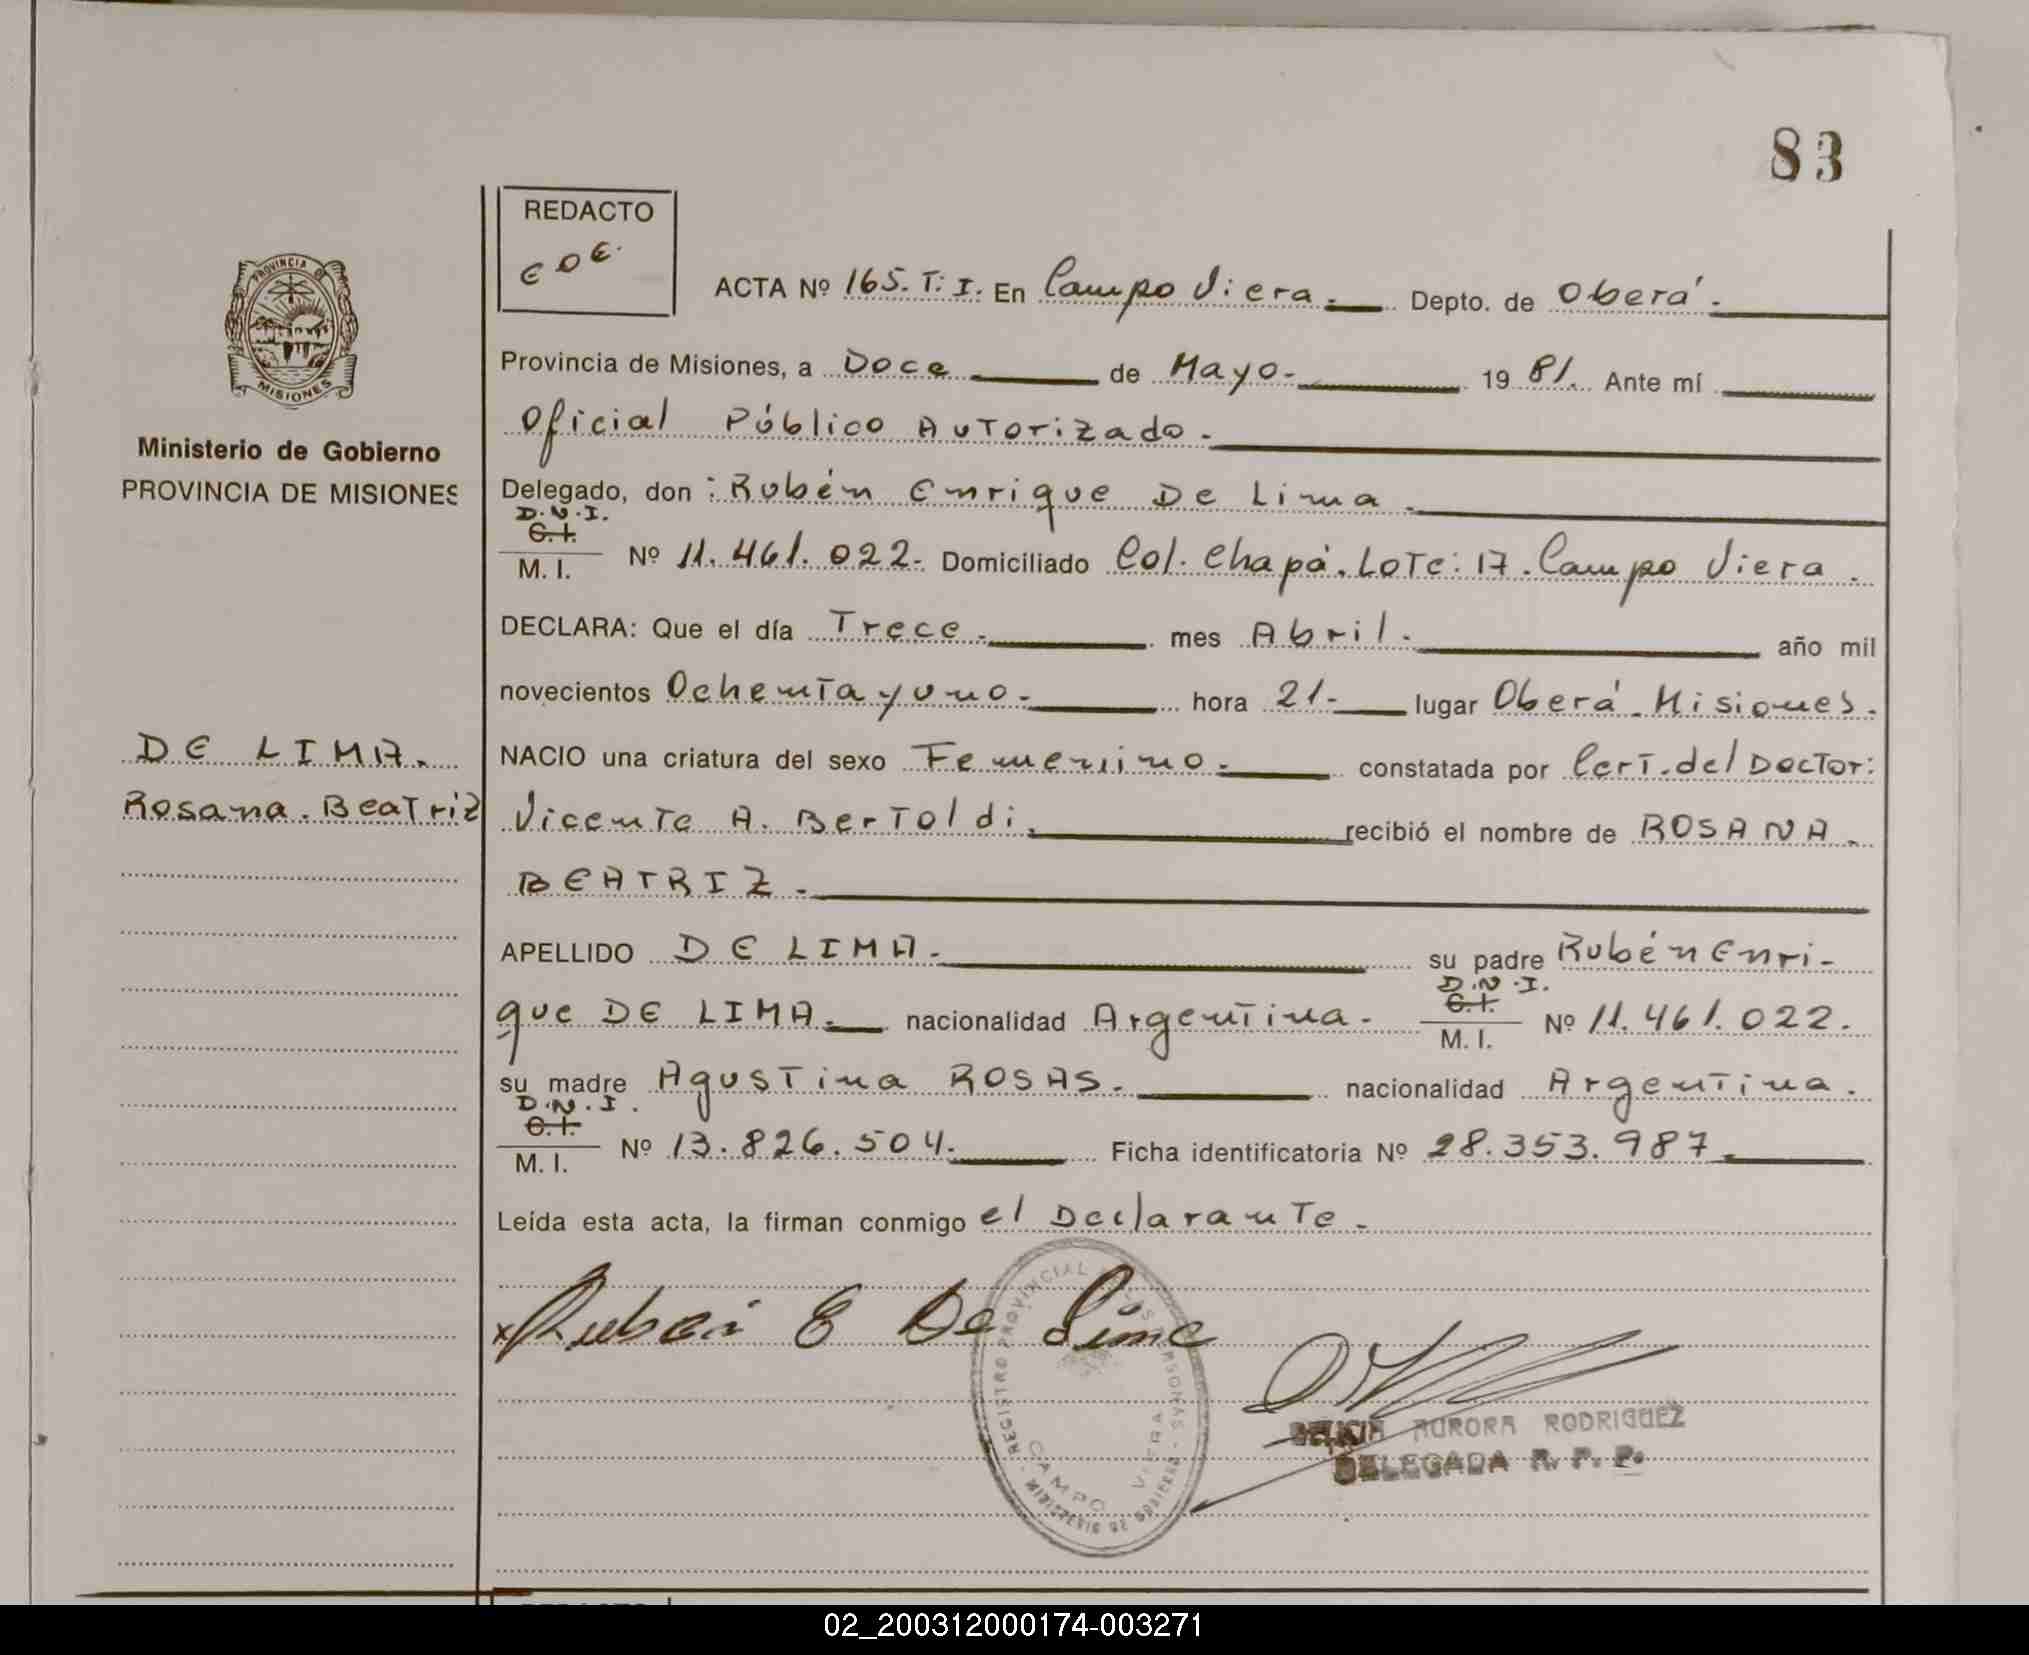 83
REDACTO
ACTA Nº 165. T. I. En Campo Viera. Depto. de Oberá.
PROVINCIA DE
MISIONES
Ministerio de Gobierno
PROVINCIA DE MISIONES
Provincia de Misiones, a Doce de Mayo. 19 81. Ante mí
Oficial Público Autorizado.
Delegado, don : Rubén Enrique De Lima.
D.N.I.
C.I.
M. I. Nº 11.461.022. Domiciliado Col. Chapá. Lote: 17. Campo Viera.
DECLARA: Que el día Trece. mes Abril. año mil
novecientos Ochenta y uno. hora 21. lugar Oberá. Misiones.
DE LIMA.
Rosana. Beatriz
NACIO una criatura del sexo Femenino. constatada por Cert. del Doctor:
Vicente A. Bertoldi. recibió el nombre de ROSANA.
BEATRIZ.
APELLIDO DE LIMA. su padre Rubén Enri-
que DE LIMA. nacionalidad Argentina. D.N.I. C.I. M. I. Nº 11.461.022.
su madre Agustina ROSAS. nacionalidad Argentina.
D.N.I.
C.I.
M. I. Nº 13.826.504. Ficha identificatoria Nº 28.353.987
Leída esta acta, la firman conmigo el Declarante.
x Rubén E De Lima
REGISTRO PROVINCIAL DE LAS PERSONAS - MINISTERIO DE GOBIERNO -
CAMPO VIERA
AURORA RODRIGUEZ
DELEGADA R. P. P.
02_200312000174-003271